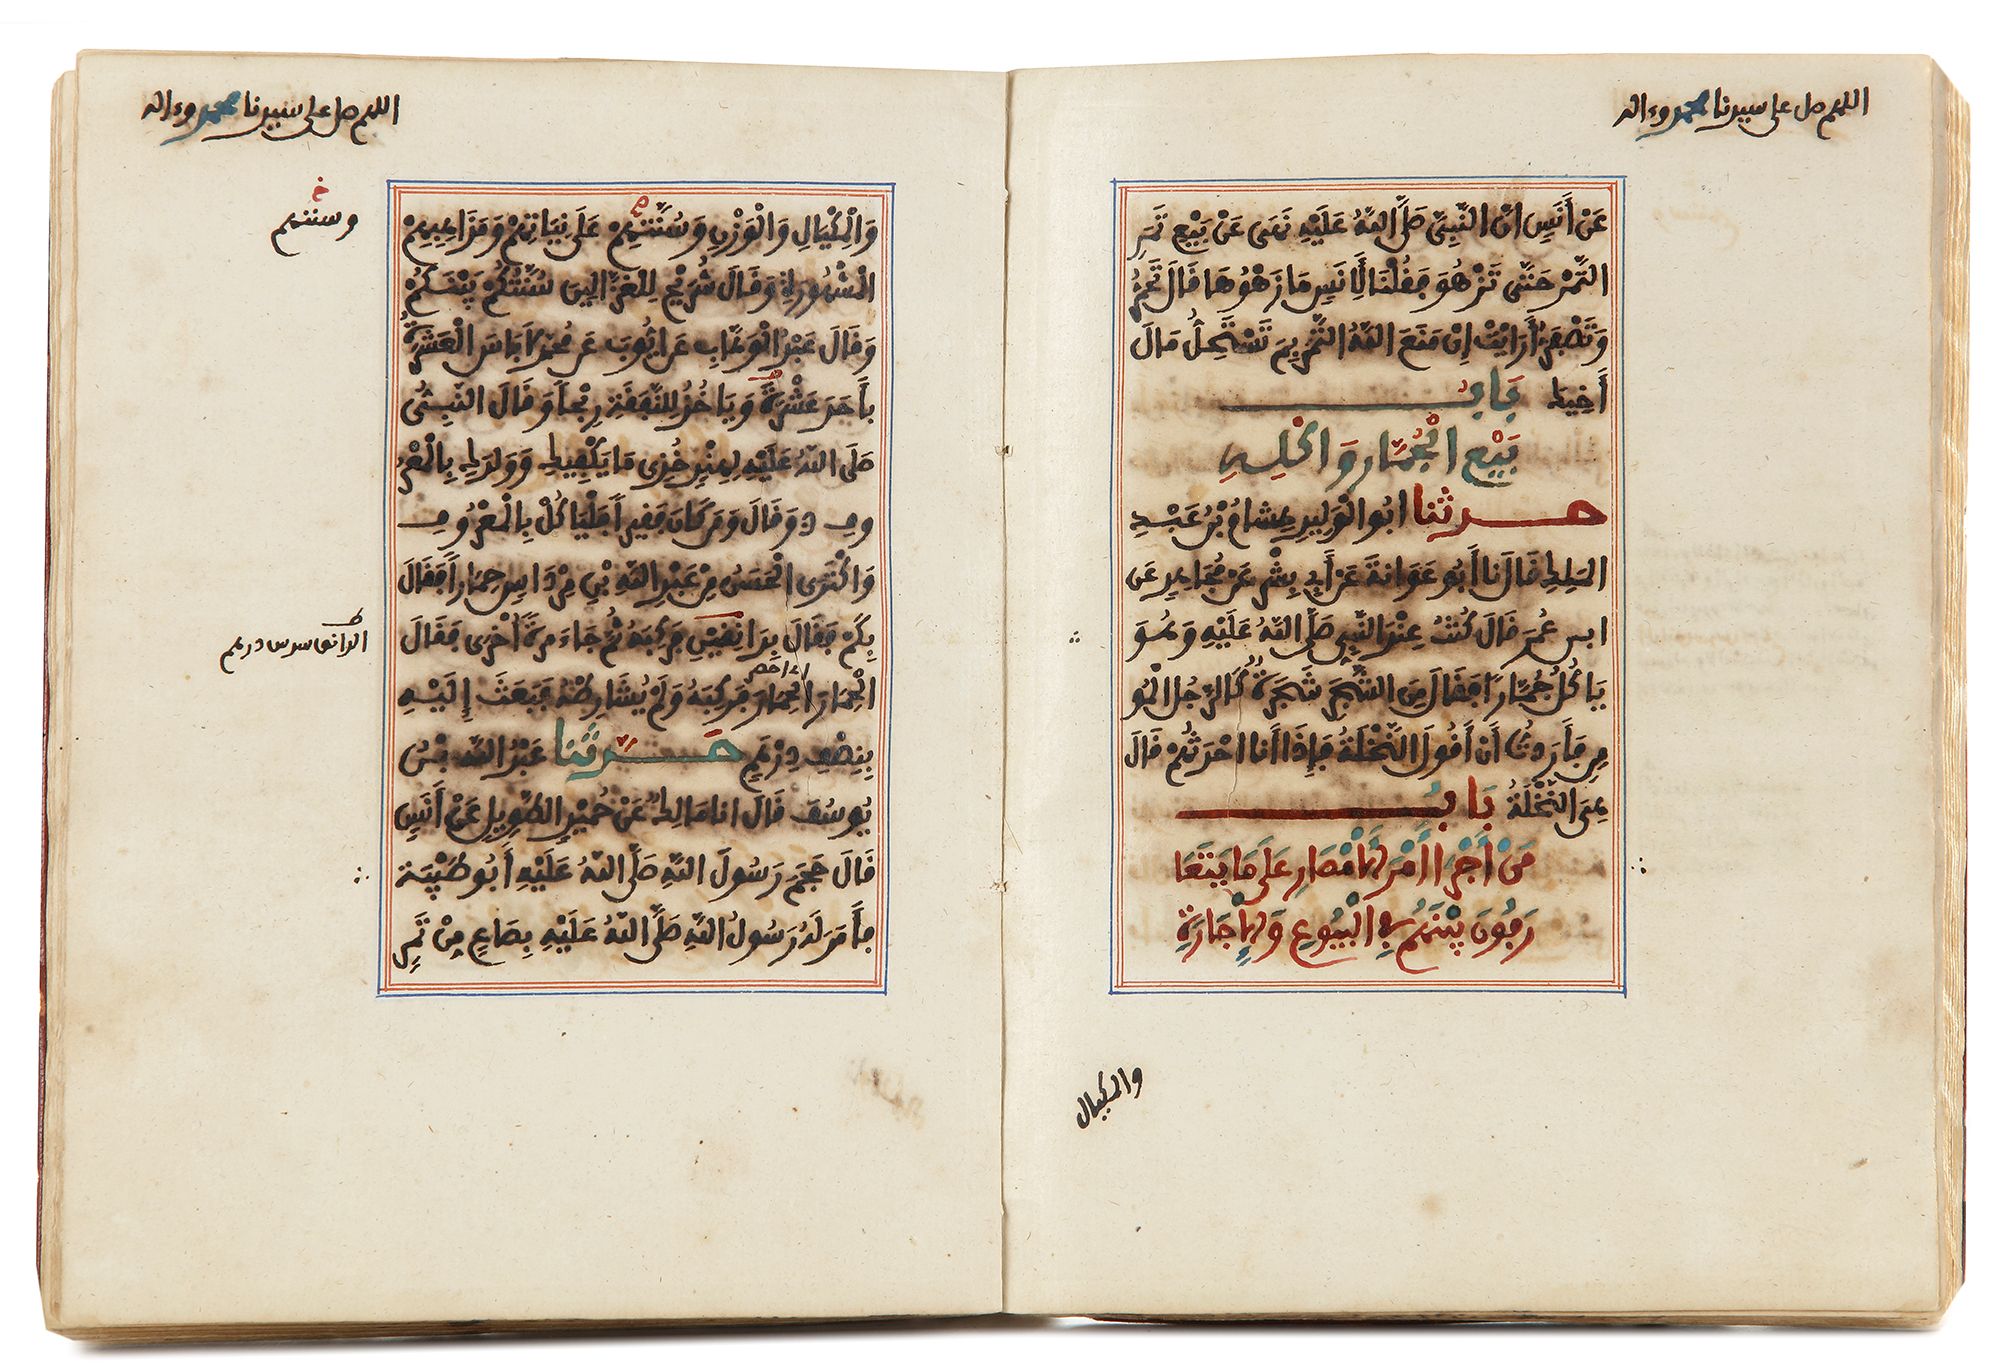 اللهم صل على سيدنا محمد وءاله
عَنْ أَنَسٍ أنّ النَّبِيّ صَلَّى اللهُ عَلَيْهِ نَهَى عَنْ بَيْعِ ثَمَرِ
التَّمْرِ حَتَّى تَزْهُوَ فَقُلْنَا لِأَنَسٍ مَا زَهْوُهَا قَالَ تَحْمَرُّ
وَتَصْفَرُّ أَرَايْتَ إِنْ مَنَعَ اللهُ الثَّمَرَ بِمَ تَسْتَحِلُّ مَالَ
أَخِيكَ بَابُ
بَيْعِ الْجُمَّارِ وَأكْلِهِ
حدثنا أبو الْوَلِيدِ هِشَامُ بْنُ عَبْدِ
الملِكِ قَالَ نَا أَبُو عَوَانَةَ عَنْ أَبِي بِشْرٍ عَنْ مُجَاهِدٍ عَنِ
ابن عُمَرَ قَالَ كُنْتُ عِنْدَ النَّبِيِّ صَلَّى اللهُ عَلَيْهِ وَهُوَ
يَاكُلُ جُمَّارًا فَقَالَ مِنَ الشَّجَرِ شَجَرَةٌ كَالرَّجُلِ الْمُو
مِنِ فَأَرَدتُّ أَنْ أَقُولَ النَّخْلَةُ فَإِذَا أَنَا أحْدَثُهُمْ قَالَ
هِىَ النَّخْلَةُ بَابُ
مَنْ أَجْرَا أَمْرَ الْأَمْصَارِ عَلَى مَا يَتَعَا
رَفُونَ بَيْنَهُمْ فِي الْبُيُوعِ وَالْإِجَارَةِ
والمكيال
اللهم صل على سيدنا محمد وءاله
وَالْمِكْيَالِ وَالْوَزْنِ وَسُنَّتِهِمْ عَلَى نِيَّاتِهِمْ وَمَذَاهِبِهِمْ
وسننهم
الْمَشْهُورَةِ وَقَالَ شُرَيْحٌ لِلْغَزَّالِينَ سُنَّتُكُمْ بَيْنَكُمْ
وَقَالَ عَبْدُ الْوَهَّابِ عَنْ أيُّوبَ عَنْ مُحَمَّدٍ لَا بَاسَ الْعَشَرَةُ
بِأَحَدَ عَشَرَ وَيَاخُذُ لِلنَّفَقَةِ رِبْحًا وَقَالَ النَّبِيُّ
صَلَّى اللهُ عَلَيْهِ لِهِنْدٍ خُذِي مَا يَكْفِيكِ وَوَلَدَكِ بِالْمَعْرُ
وفِ وَقَالَ وَمَن كَانَ فَقِيرًا فَلْيَاكُلْ بِالْمَعْرُوفِ
وَاكْتَرَى الْحَسَنُ مِنْ عَبْدِ اللهِ بْنِ مِرْدَاسٍ حِمَارًا فَقَالَ
بِكَمْ فَقَالَ بِدَانِقَيْنِ فَرَكِبَهُ ثُمَّ جَاءَ مَرَّةً أُخْرَى فَقَالَ
الدانق سدس درهم
الْحِمَارَ الْحِمَارَ فَرَكِبَهُ وَلَمْ يُشَارِطْهُ فَبَعَثَ إِلَيْهِ
بِنِصْفِ دِرْهَمٍ حَدّثنا عَبْدُ اللهِ بْنُ
يُوسُفَ قَالَ انا مَالِكٌ عَنْ حُمَيْدٍ الطَّوِيلِ عَنْ أَنَسٍ
قَالَ حَجَمَ رَسُولَ اللهِ صَلَّى اللهُ عَلَيْهِ أَبُو طَيْبَةَ
فَأَمَرَ لَهُ رَسُولُ اللهِ صَلَّى اللهُ عَلَيْهِ بِصَاعٍ مِنْ تَمْرٍ